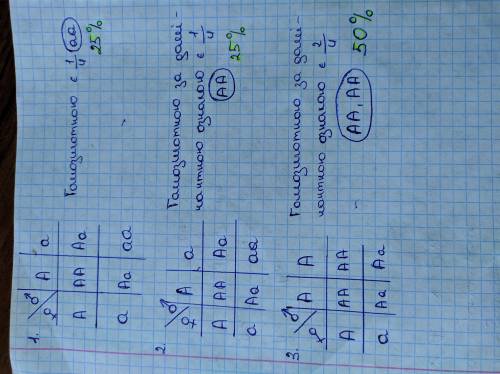 1.
♀ \ ♂ | A | a
A | AA | Aa
a | Aa | aa
Гомозиготною є 1/4 aa
25%
2.
♀ \ ♂ | A | a
A | AA | Aa
a | Aa | aa
Гомозиготною за домі-
нантною ознакою є 1/4
AA 25%
3.
♀ \ ♂ | A | A
A | AA | AA
a | Aa | Aa
Гомозиготною за домі-
нантною ознакою є 2/4
AA, AA 50%